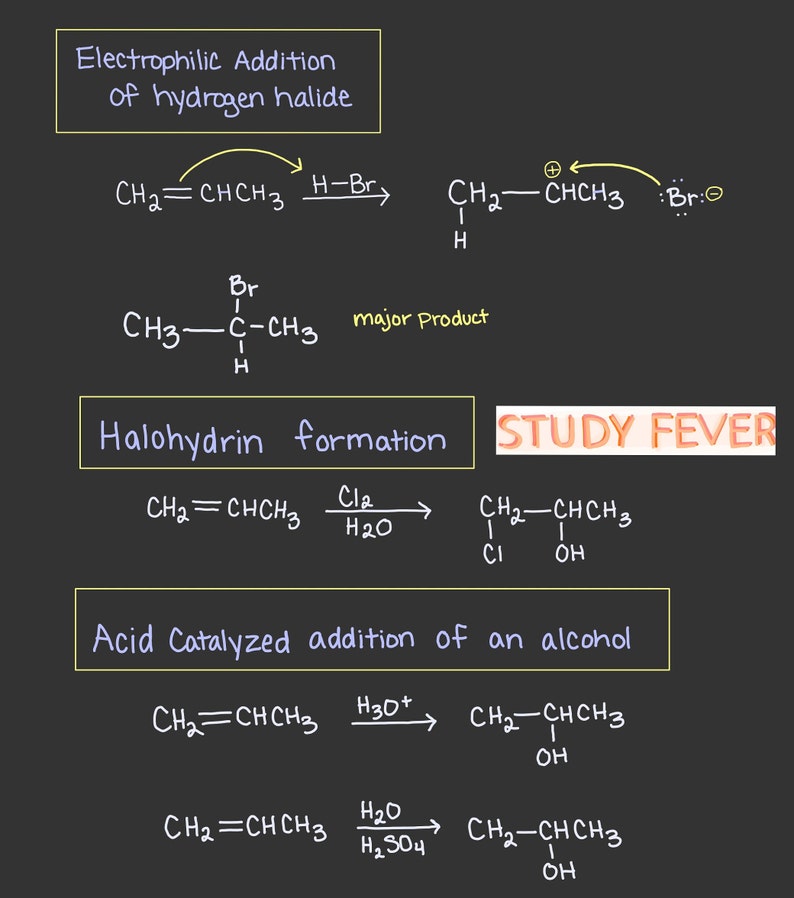 Electrophilic Addition
of hydrogen halide
CH2=CHCH3 H-Br CH2-CHCH3 :Br:
⊕ ⊖
H
Br
CH3-C-CH3 major product
H
Halohydrin formation STUDY FEVER
CH2=CHCH3 Cl2 CH2-CHCH3
H2O
Cl OH
Acid Catalyzed addition of an alcohol
CH2=CHCH3 H3O+ CH2-CHCH3
OH
CH2=CHCH3 H2O CH2-CHCH3
H2SO4
OH